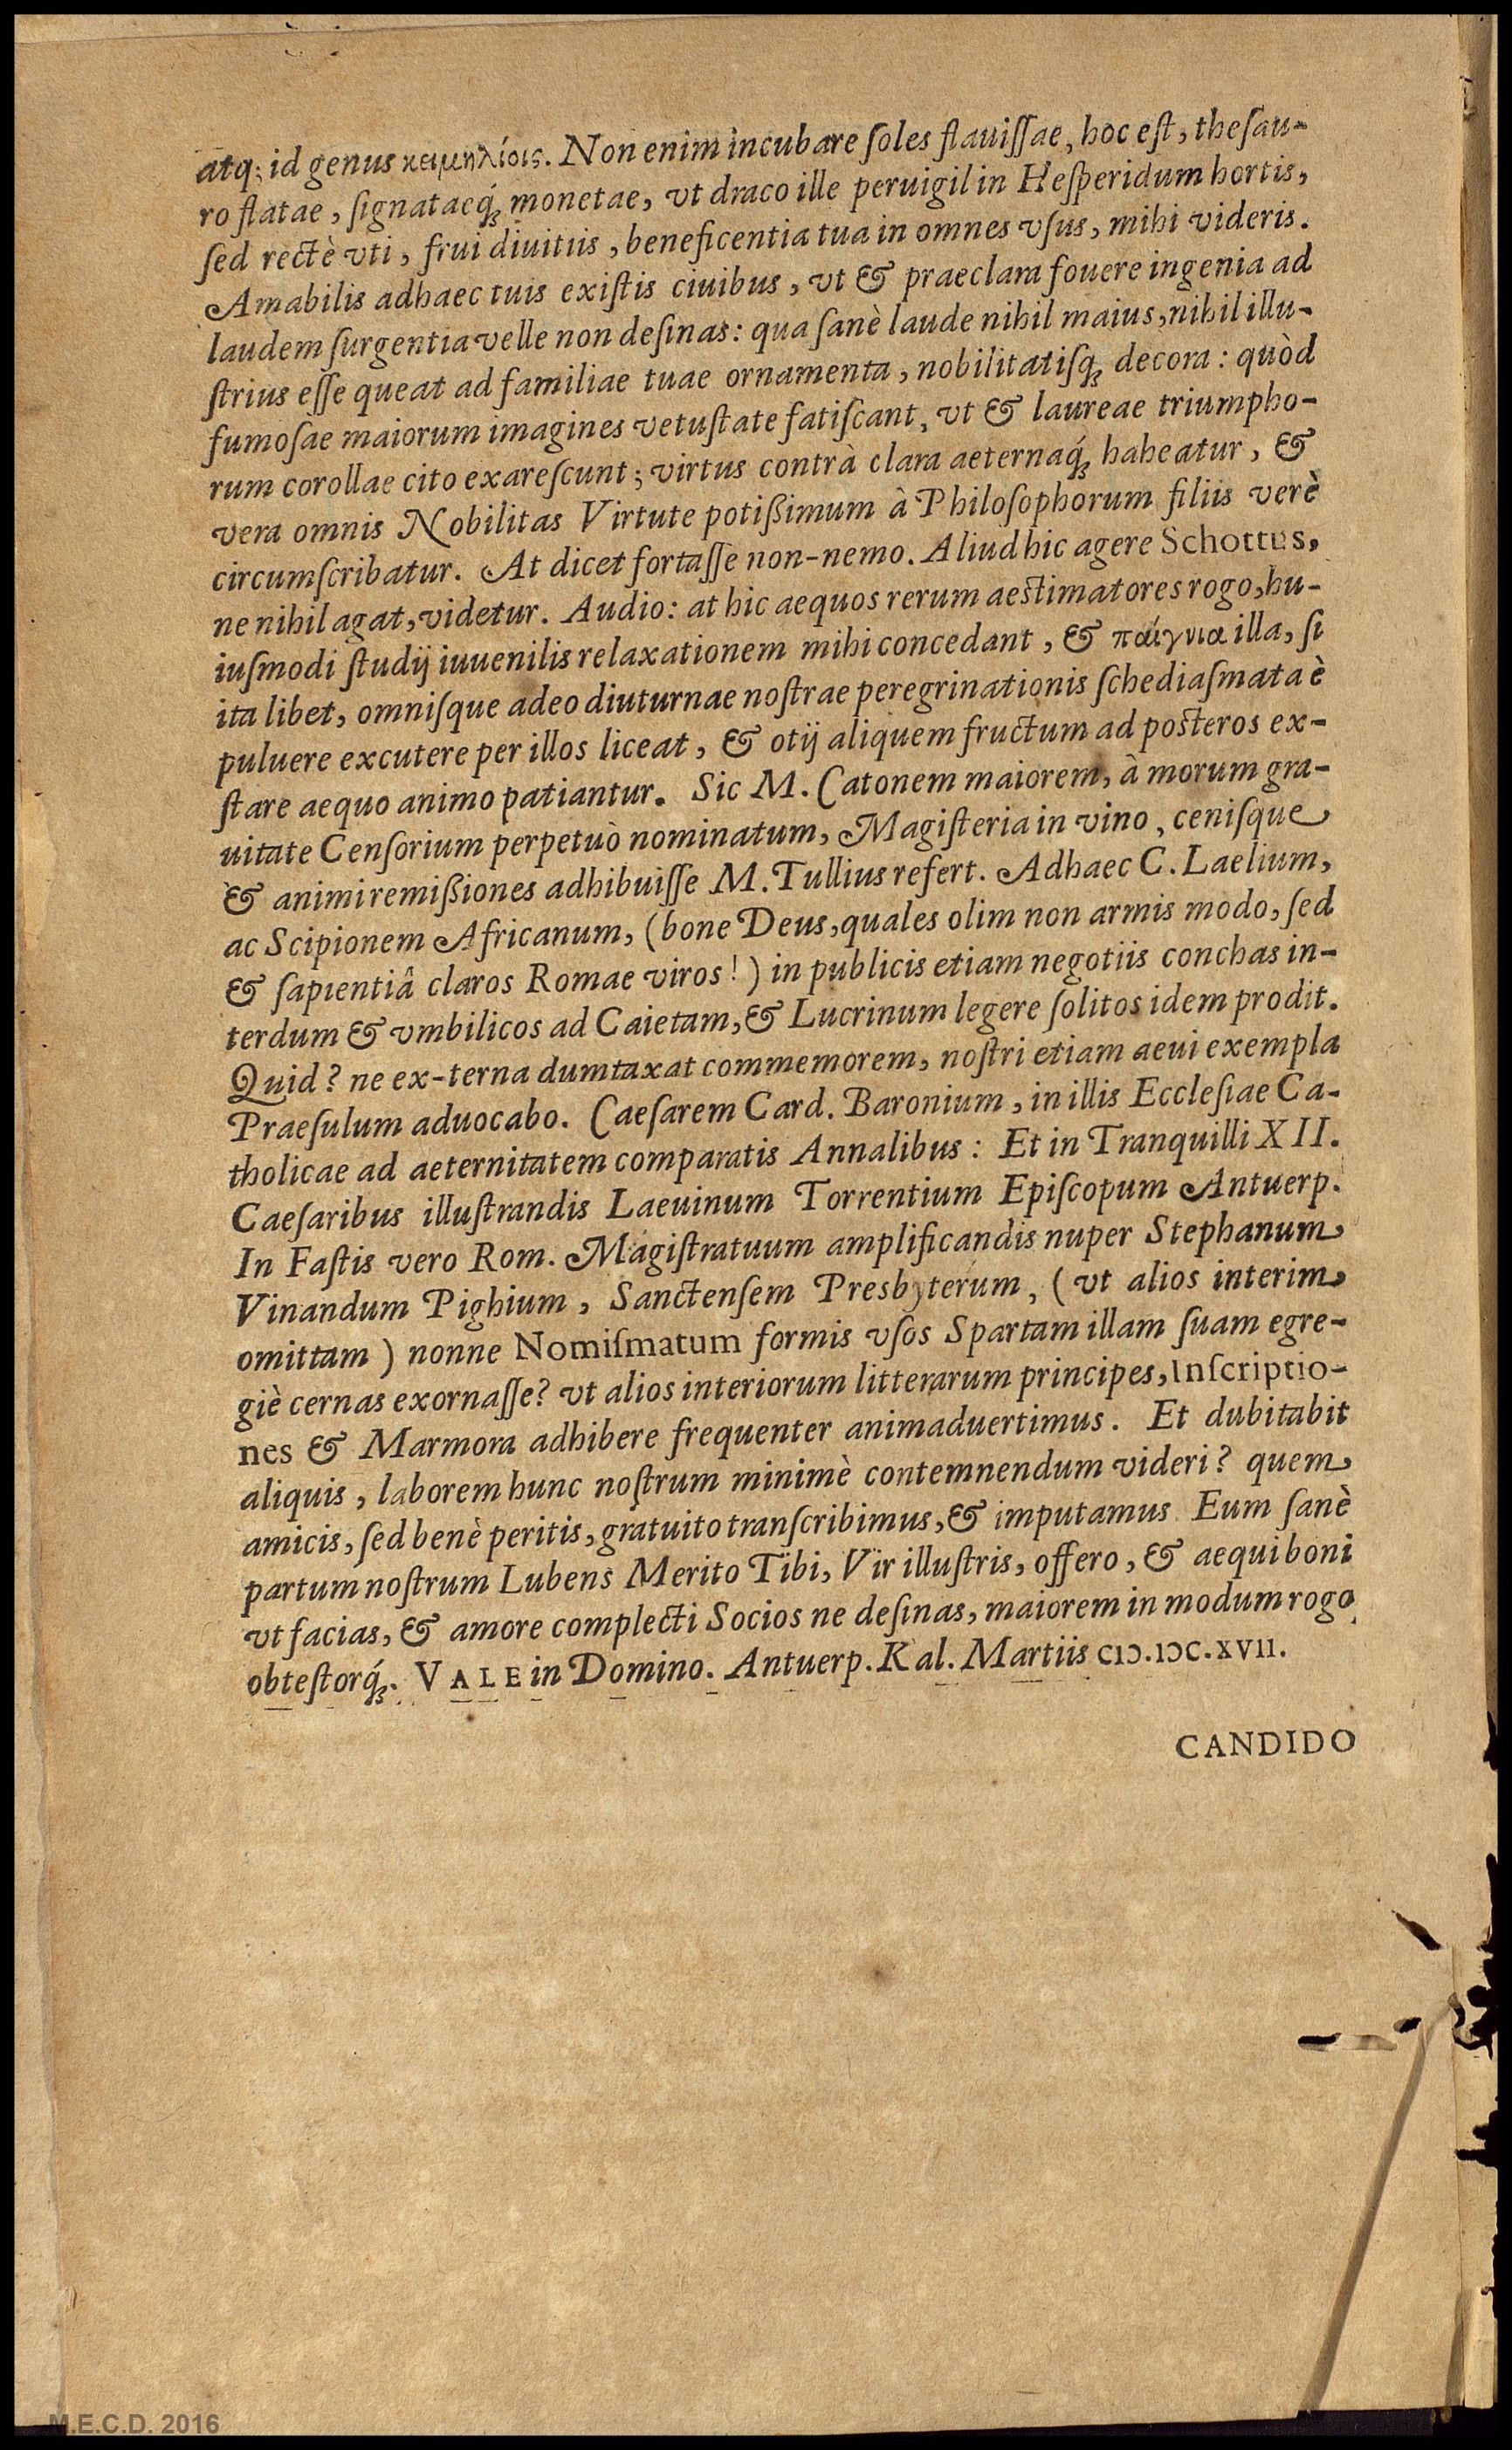 atq; id genus κειμηλίοις. Non enim incubare ſoles flauiſſae, hoc eſt, theſau-
ro flatae, ſignataeq́; monetae, vt draco ille peruigil in Heſperidum hortis,
ſed rectè vti, frui diuitiis, beneficentia tua in omnes vſus, mihi videris.
Amabilis adhaec tuis exiſtis ciuibus, vt & praeclara fouere ingenia ad
laudem ſurgentia velle non deſinas: qua ſanè laude nihil maius, nihil illu-
ſtrius eſſe queat ad familiae tuae ornamenta, nobilitatiſq; decora: quòd
fumoſae maiorum imagines vetuſtate fatiſcant, vt & laureae triumpho-
rum corollae cito exareſcunt; virtus contrà clara aeternaq́; habeatur, &
vera omnis Nobilitas Virtute potißimum à Philoſophorum filiis verè
circumſcribatur. At dicet fortaſſe non-nemo. Aliud hic agere Schottus,
ne nihil agat, videtur. Audio: at hic aequos rerum aeſtimatores rogo, hu-
iuſmodi ſtudij iuuenilis relaxationem mihi concedant, & παίγνια illa, ſi
ita libet, omniſque adeo diuturnae noſtrae peregrinationis ſchediaſmata è
puluere excutere per illos liceat, & otij aliquem fructum ad poſteros ex-
ſtare aequo animo patiantur. Sic M. Catonem maiorem, à morum gra-
uitate Cenſorium perpetuò nominatum, Magiſteria in vino, ceniſque
& animi remißiones adhibuiſſe M. Tullius refert. Adhaec C. Laelium,
ac Scipionem Africanum, (bone Deus, quales olim non armis modo, ſed
& ſapientiâ claros Romae viros!) in publicis etiam negotiis conchas in-
terdum & vmbilicos ad Caietam, & Lucrinum legere ſolitos idem prodit.
Quid? ne ex-terna dumtaxat commemorem, noſtri etiam aeui exempla
Praeſulum aduocabo. Caeſarem Card. Baronium, in illis Eccleſiae Ca-
tholicae ad aeternitatem comparatis Annalibus: Et in Tranquilli XII.
Caeſaribus illuſtrandis Laeuinum Torrentium Epiſcopum Antuerp.
In Faſtis vero Rom. Magiſtratuum amplificandis nuper Stephanum
Vinandum Pighium, Sanctenſem Presbyterum, (vt alios interim
omittam) nonne Nomiſmatum formis vſos Spartam illam ſuam egre-
giè cernas exornaſſe? vt alios interiorum litterarum principes, Inſcriptio-
nes & Marmora adhibere frequenter animaduertimus. Et dubitabit
aliquis, laborem hunc noſtrum minimè contemnendum videri? quem
amicis, ſed benè peritis, gratuito tranſcribimus, & imputamus. Eum ſanè
partum noſtrum Lubens Merito Tibi, Vir illuſtris, offero, & aequi boni
vt facias, & amore complecti Socios ne deſinas, maiorem in modum rogo
obteſtorq́;. VALE in Domino. Antuerp. Kal. Martiis CIↃ.IↃC.XVII.
CANDIDO
M.E.C.D. 2016